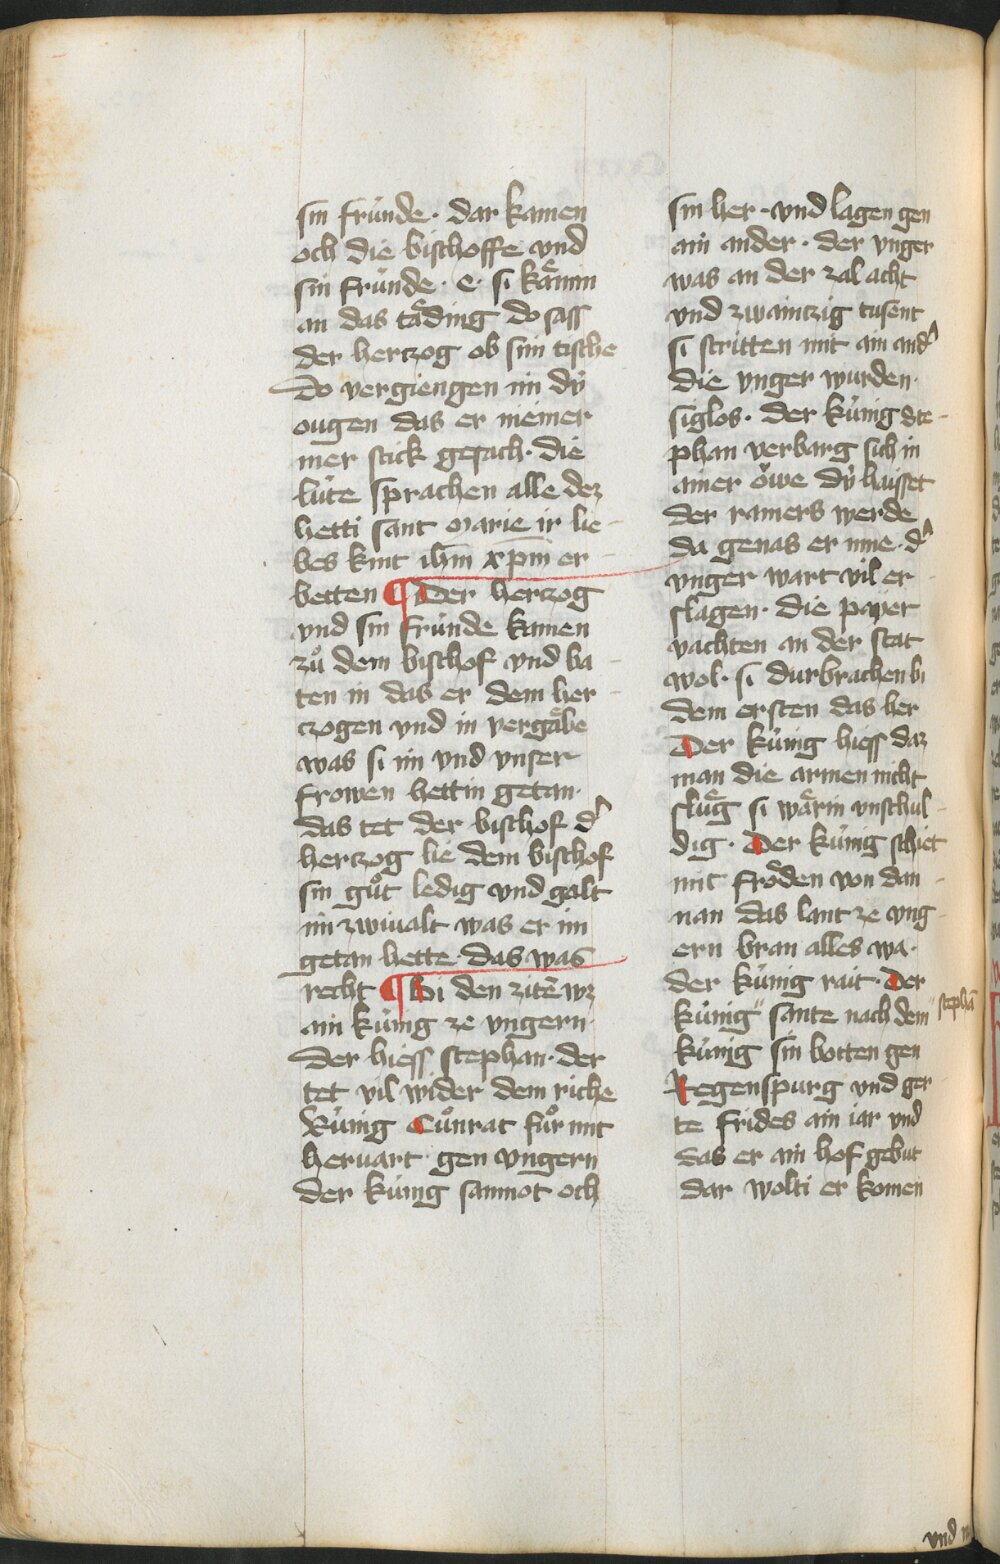 sin fründe · dar kamen
och die bischoffe vnd
sin fründe · e · si kaͤmin
an das taͤding do sass
der herczog ob sim tische
Do vergiengen im dy̍
ougen das er niemer
mer stick gesach · die
lüte sprachen alle dez
hetti sant marie ir lie-
bes kint ihm̅ xp̅m er-
betten ¶ Der herczog
vnd sin fründe kamen
zuͦ dem bischof vnd ba-
ten in das er dem her-
czogen vnd in vergaͤbe
was si im vnd vnser
frowen hettin getan ·
das tet der bischof d'
herczog lie dem bischof
sin guͦt ledig vnd galt
im zwiualt was er im
getan hette · das was
recht ¶ Bi den zitē wz
ain küng ze vngern ·
Der hiess stephan · der
tet vil wider dem riche
Küng Cuͦnrat fuͦr mit
heruart · gen vngern
der küng samnot och
sin her · vnd lagen gen
ain ander · der vnger
was an der zal acht
vnd zwaintzig tusent
si stritten mit ain and'
die vnger wurden ·
siglos · der künig Ste-
phan verbarg sich in
ainer oͤwe dy̍ haisset
der ramers werde
da genas er inne · d'
vnger wart vil er-
slagen · die payer
vachten an der stat
wol · si durbrachen bi
dem ersten das her
Der künig hiess daz
man die armen nicht
sluͤg si waͤrin vnschul-
dig · Der künig schiet
mit froͤden von dan-
nan das lant ze vng-
ern bran alles wa ·
der künig rait · Der
künig" sante nach dem "stephā
künig sin botten gen
Regenspurg vnd ger-
te frides ain iar vnd
das er ain hof gebut
dar wolti er komen
vnd